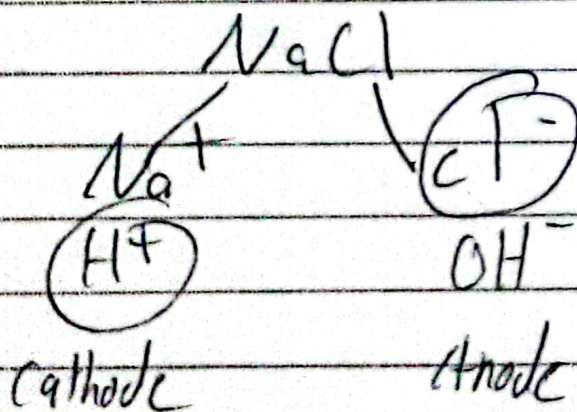 NaCl
Na+ Cl-
H+ OH-
Cathode Anode